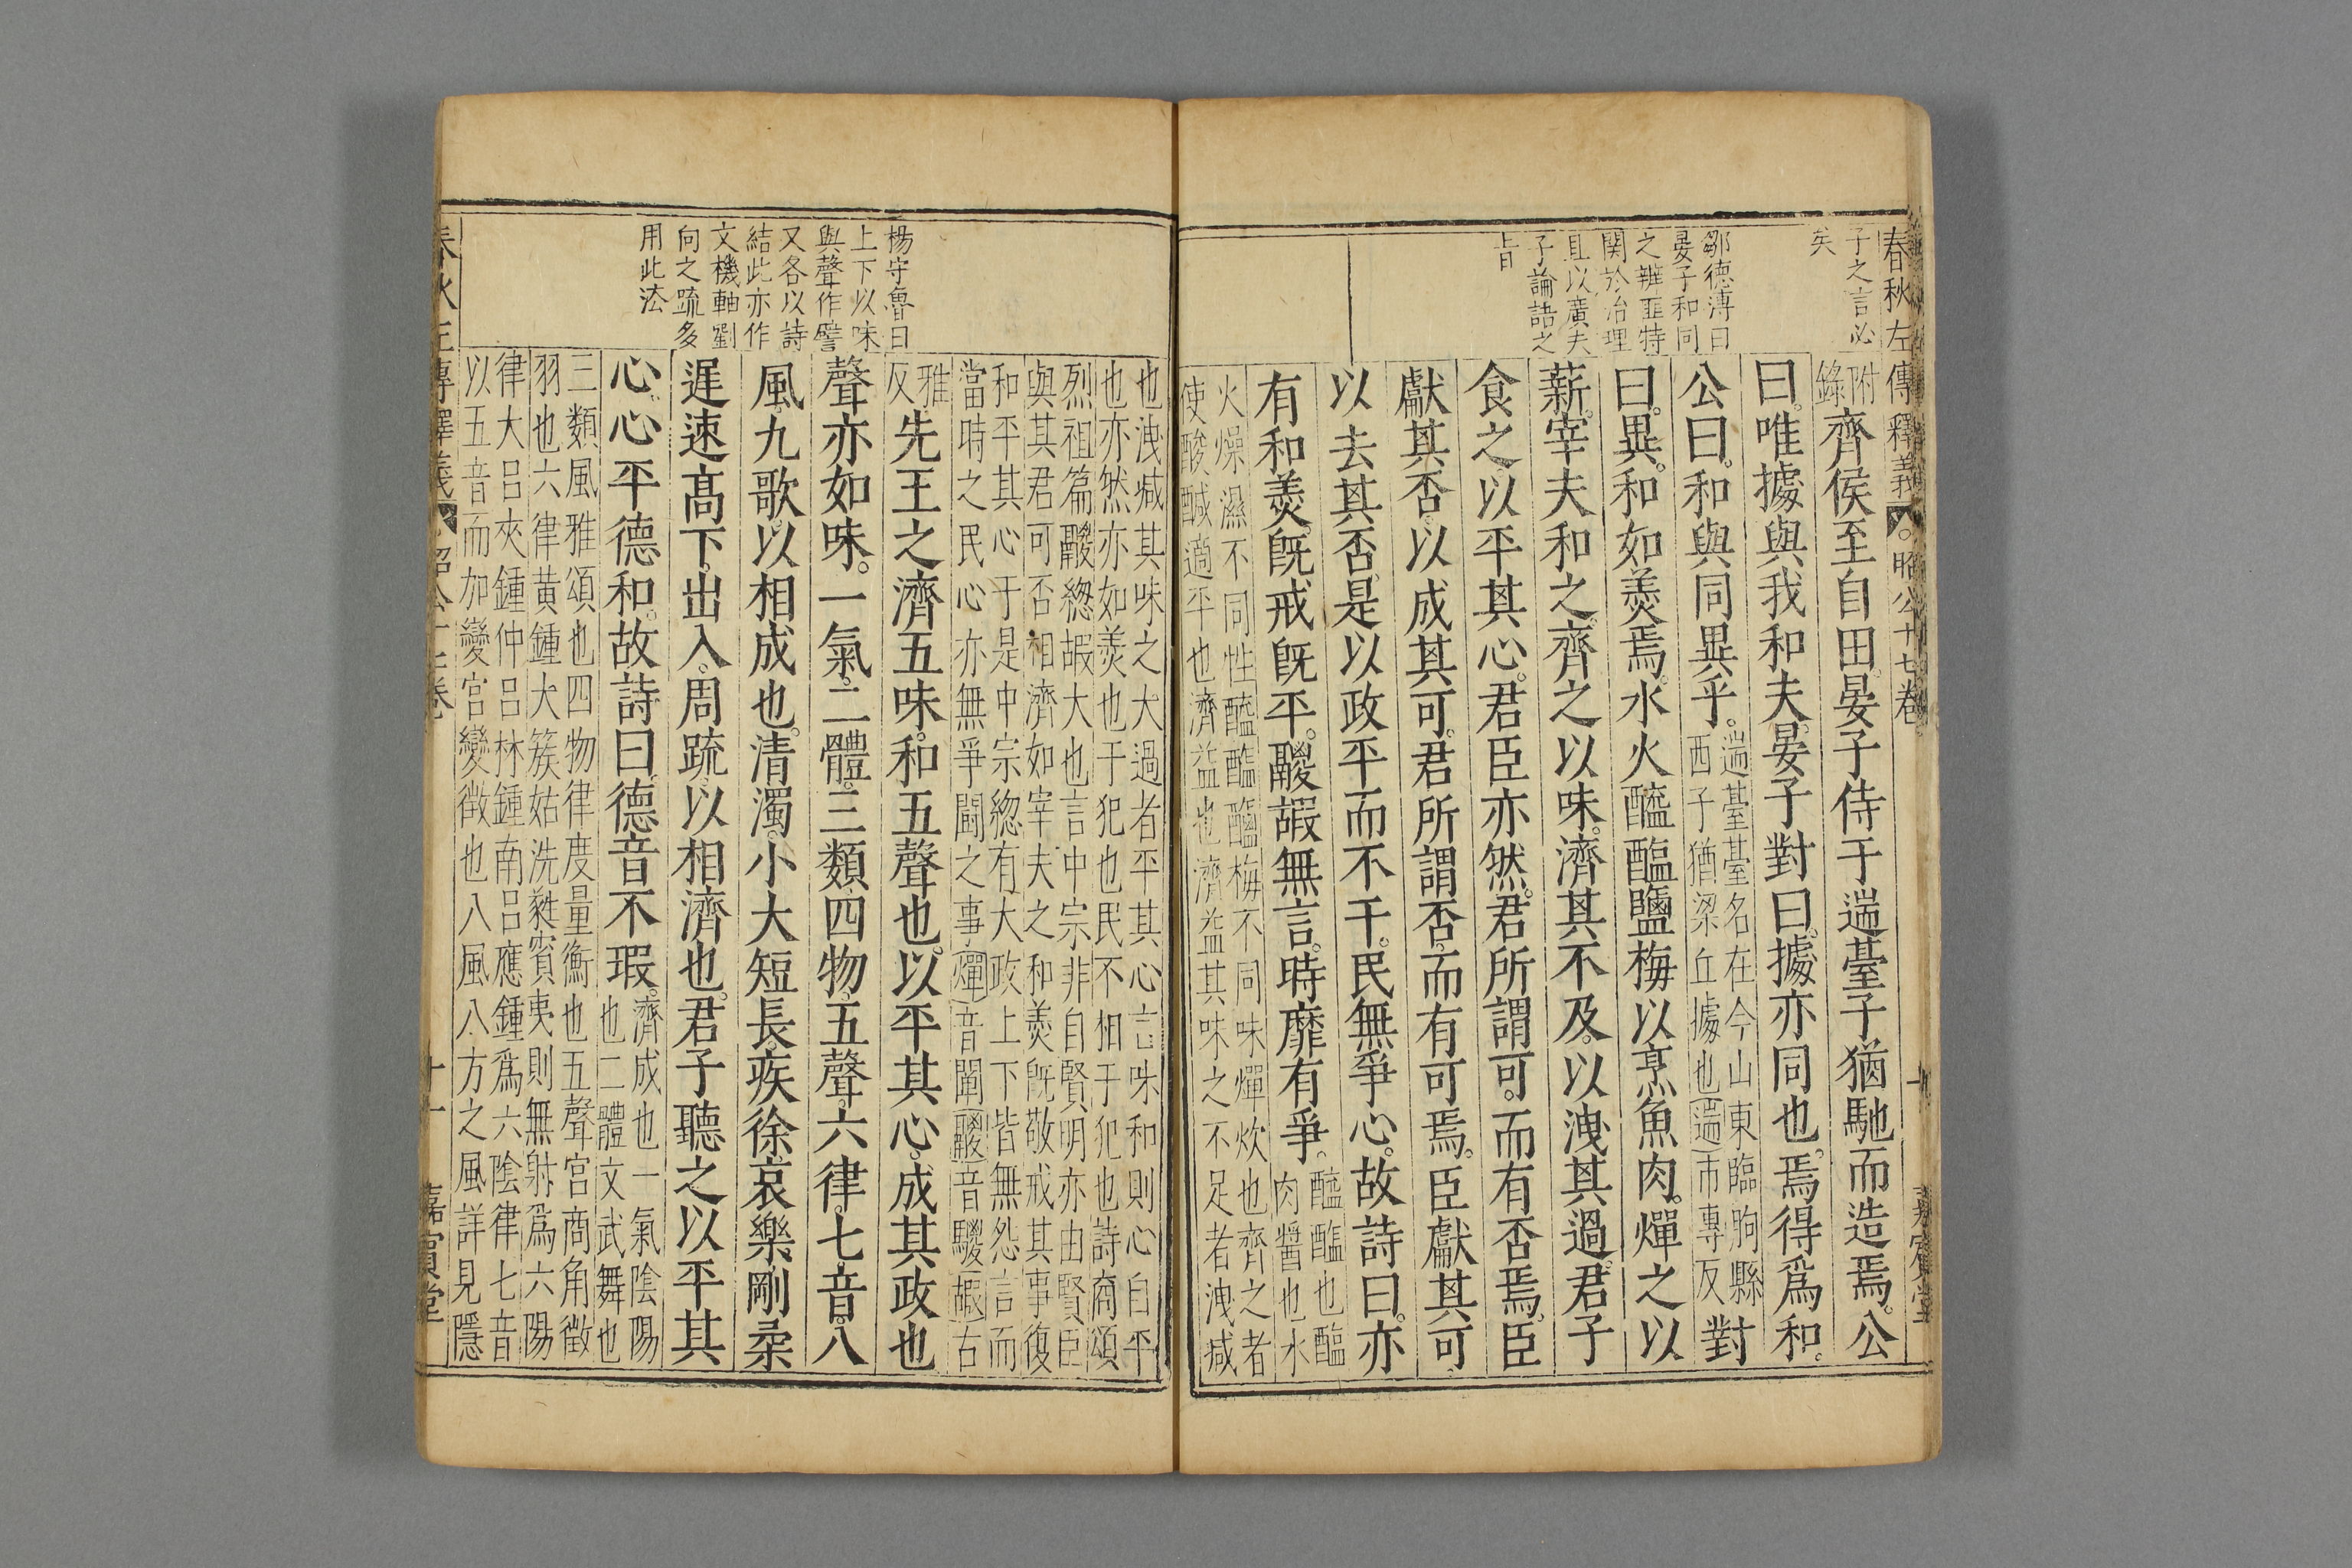 春秋左傳釋義 昭公十七卷 十 嘉賓堂
子之言必
矣
鄒德溥曰
晏子和同
之辨匪特
関於治理
且以廣夫
子論語之
旨
附錄齊侯至自田。晏子侍于遄臺。子猶馳而造焉。公
曰。唯據與我和夫。晏子對曰。據亦同也。焉得爲和。
公曰。和與同異乎。遄臺臺名在今山東臨朐縣西子猶梁丘據也遄市專反對
曰。異。和如羮焉。水火醯醢鹽梅以烹魚肉。燀之以
薪。宰夫和之。齊之以味。濟其不及。以洩其過。君子
食之。以平其心。君臣亦然。君所謂可。而有否焉。臣
獻其否。以成其可。君所謂否。而有可焉。臣獻其可。
以去其否。是以政平而不干。民無爭心。故詩曰。亦
有和羮。旣戒旣平。鬷嘏無言。時靡有爭。醯醢也醢肉醬也水
火燥濕不同性醯醢鹽梅不同味燀炊也齊之者
使酸醎適平也濟益也濟益其味之不足者洩减
楊守魯曰
上下以味
與聲作譬
又各以詩
結此亦作
文機軸劉
向之疏多
用此法
也洩减其味之大過者平其心言味和則心自平
也亦然亦如羮也干犯也民不相干犯也詩商頌
烈祖篇鬷緫嘏大也言中宗非自賢明亦由賢臣
與其君可否相濟如宰夫之和羮旣敬戒其事復
和平其心于是中宗緫有大政上下皆無怨言而
當時之民心亦無爭鬪之事燀音闡鬷音騣嘏右
雅反先王之濟五味。和五聲也。以平其心。成其政也
聲亦如味。一氣。二體。三類。四物。五聲。六律。七音。八
風。九歌。以相成也。清濁。小大。短長。疾徐。哀樂。剛柔
遲速。髙下。出入。周疏。以相濟也。君子聽之。以平其
心。心平德和。故詩曰。德音不瑕。濟成也一氣陰陽也二體文武舞也
三類風雅頌也四物律度量衡也五聲宮商角徵
羽也六律黃鍾大簇姑洗蕤賓夷則無射爲六陽
律大呂夾鍾仲呂林鍾南呂應鍾爲六陰律七音
以五音而加變宮變徵也八風八方之風詳見隱
春秋左傳釋義 昭公十七卷 十一 嘉賓堂